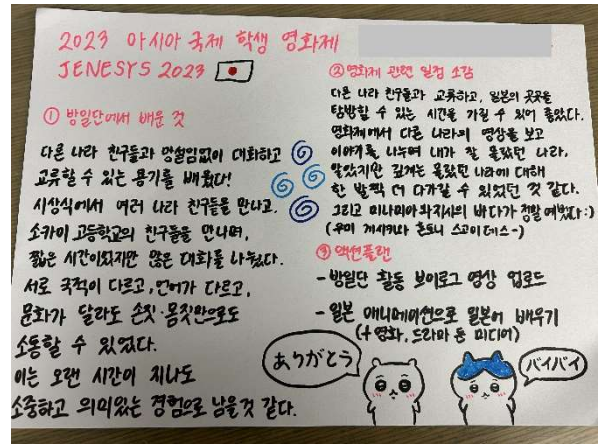 2023 아시아 국제 학생 영화제
JENESYS 2023
① 방일단에서 배운 것
다른 나라 친구들과 망설임없이 대화하고
교류할 수 있는 용기를 배웠다!
시상식에서 여러 나라 친구들을 만나고.
소카이 고등학교의 친구들을 만나며,
짧은 시간이었지만 많은 대화를 나눴다.
서로 국적이 다르고, 언어가 다르고,
문화가 달라도 손짓·몸짓만으로도
소통할 수 있었다.
이는 오랜 시간이 지나도
소중하고 의미있는 경험으로 남을것 같다.
② 영화제 관련 일정 소감
다른 나라 친구들과 교류하고, 일본의 곳곳을
탐방할 수 있는 시간을 가질 수 있어 좋았다.
영화제에서 다른 나라의 영상을 보고
이야기를 나누며 내가 잘 몰랐던 나라,
알았지만 깊게는 몰랐던 나라에 대해
한 발짝 더 다가갈 수 있었던 것 같다.
그리고 미나미아와지시의 바다가 정말 예뻤다:)
(우미 게시키가 혼토니 스고이데스~)
③ 액션플랜
- 방일단 활동 브이로그 영상 업로드
- 일본 애니메이션으로 일본어 배우기
(+영화, 드라마 등 미디어)
ありがとう
バイバイ